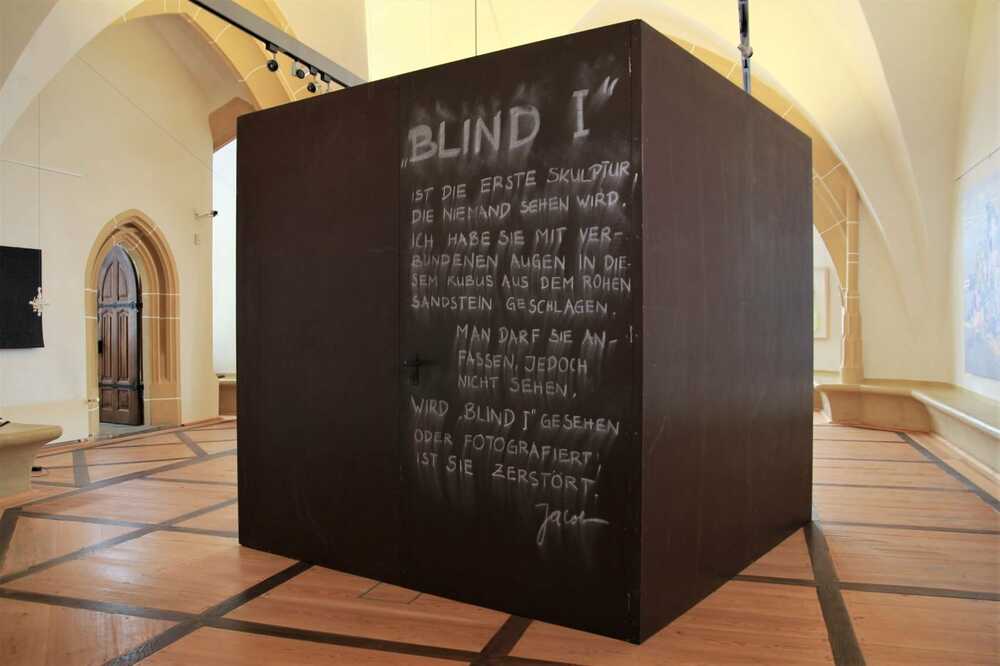 „BLIND I“
IST DIE ERSTE SKULPTUR,
DIE NIEMAND SEHEN WIRD.
ICH HABE SIE MIT VER-
BUNDENEN AUGEN IN DIE-
SEM KUBUS AUS DEM ROHEN
SANDSTEIN GESCHLAGEN.
MAN DARF SIE AN-
FASSEN, JEDOCH
NICHT SEHEN.
WIRD „BLIND I“ GESEHEN
ODER FOTOGRAFIERT,
IST SIE ZERSTÖRT.
Jacob